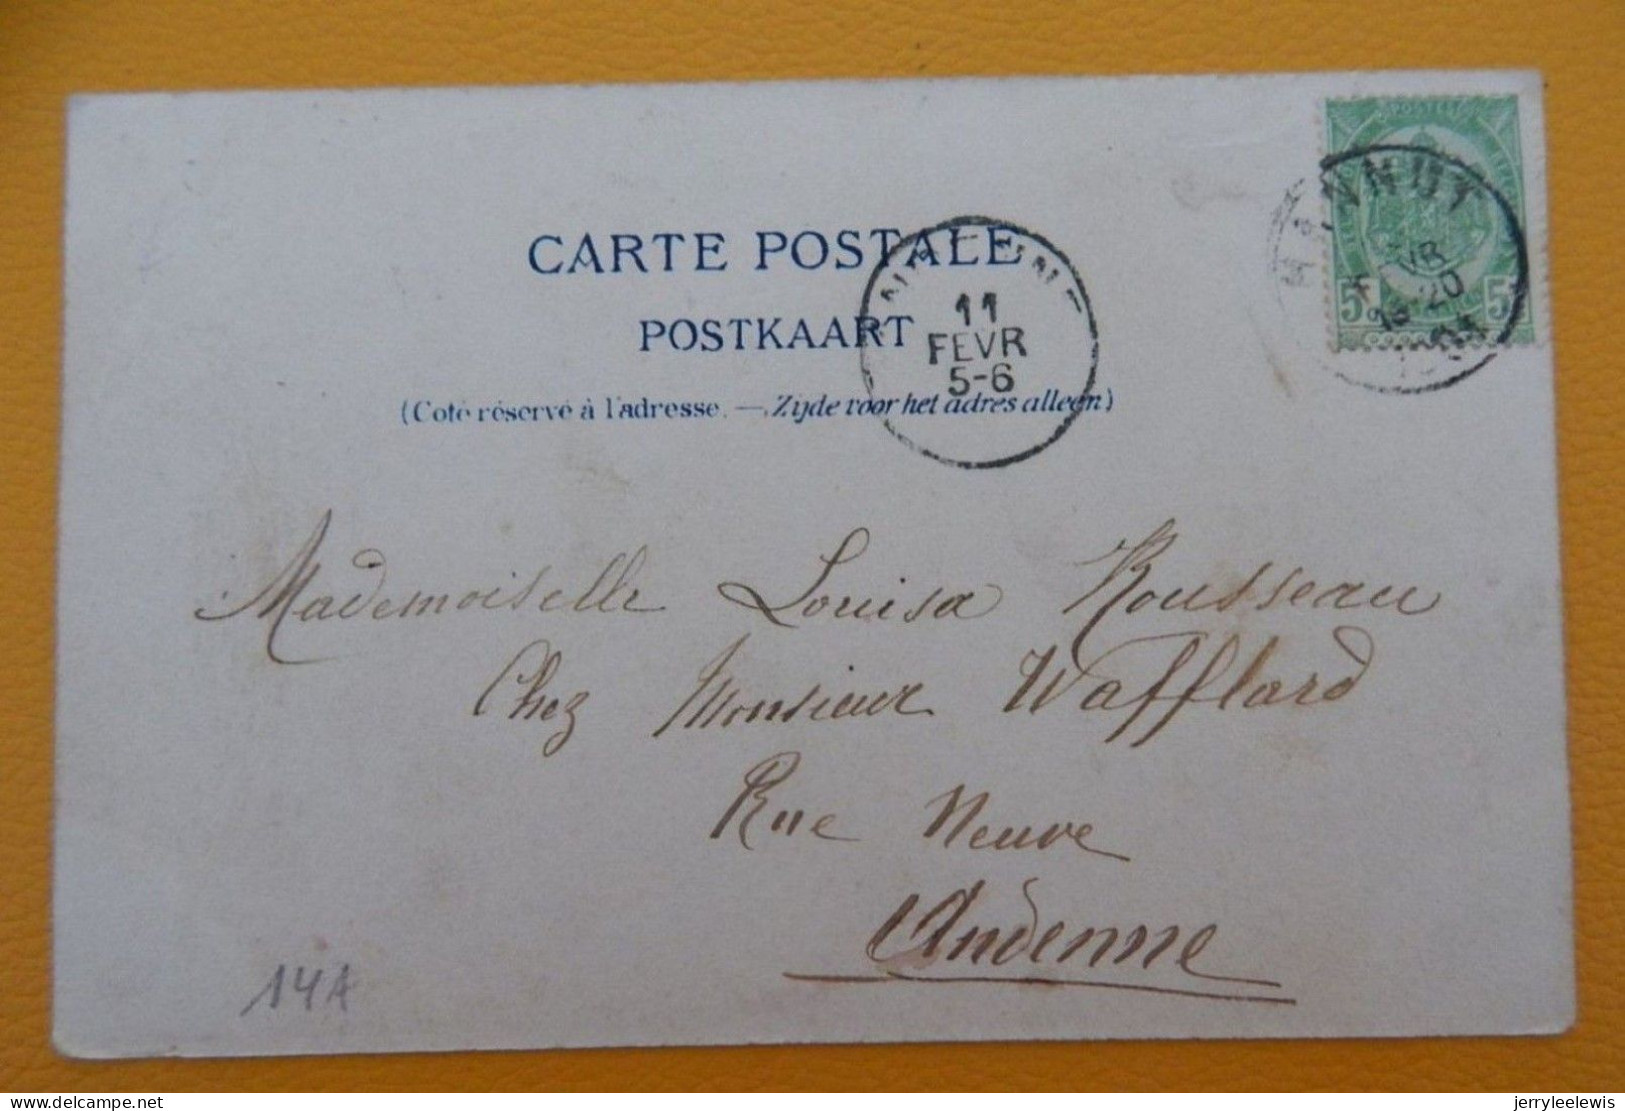 CARTE POSTALE
POSTKAART
(Coté réservé à l'adresse. — Zijde voor het adres alleen)
11
FEVR
5-6
HANNUT
FEVR
POSTES
5 5
Mademoiselle Louisa Rousseau
Chez Monsieur Wafflard
Rue Neuve
Andenne
14A
jerryleelewis
delcampe.net